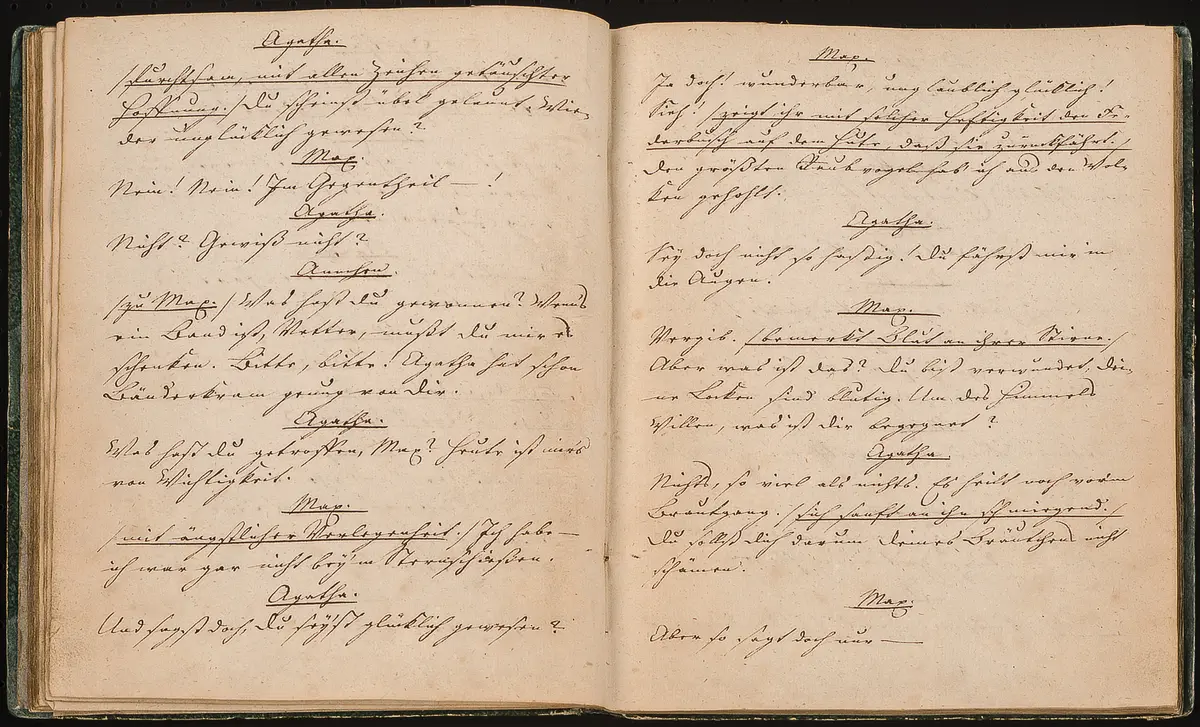 Agatha.
/furchtsam, mit allen Zeichen getäuschter
Hoffnung./ Du scheinst übel gelaunt. Wie-
der unglücklich gewesen?
Max.
Nein! Nein! Im Gegentheil — !
Agatha.
Nicht? Gewiß nicht?
Annchen.
/zu Max./ Was hast Du gewonnen? Wenns
ein Band ist, Vetter, mußt Du mir es
schenken. Bitte, bitte! Agatha hat schon
Bänderkram genug von Dir.
Agatha.
Was hast Du getroffen, Max? Heute ist mirs
von Wichtigkeit.
Max.
/mit ängstlicher Verlegenheit./ Ich habe —
ich war gar nicht beym Sternschießen.
Agatha.
Und sagst doch, Du seyst glücklich gewesen?
Max.
Ja doch! wunderbar, unglaublich glücklich!
Sieh! /zeigt ihr mit solcher Heftigkeit den Fe-
derbusch auf dem Hute, daß sie zurückfährt./
Den größten Raubvogel hab ich aus den Wol-
ken geholt.
Agatha.
Sey doch nicht so hastig! Du fährst mir in
die Augen.
Max.
Vergib. /bemerkt Blut an ihrer Stirne./
Aber was ist das? Du bist verwundet, Dei-
ne Locken sind blutig. Um des Himmels
Willen, was ist dir begegnet?
Agatha.
Nichts, so viel als nichts. Es heilt noch vorm
Brautgang. /sich sanft an ihn schmiegend./
Du sollst Dich darum Deines Bräutchens nicht
schämen.
Max.
Aber so sagt doch nur —